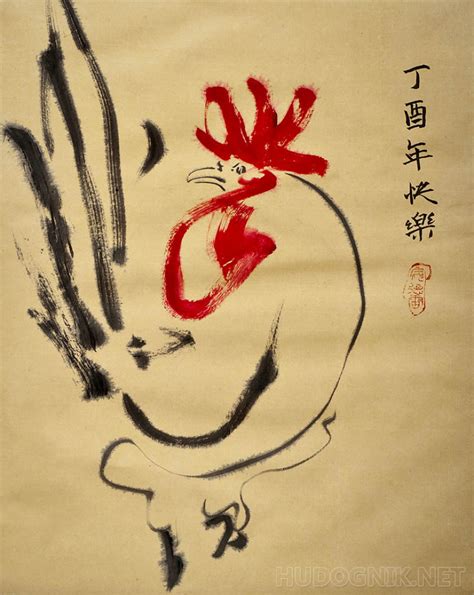 丁酉年快樂
HUDOGNIK.NET